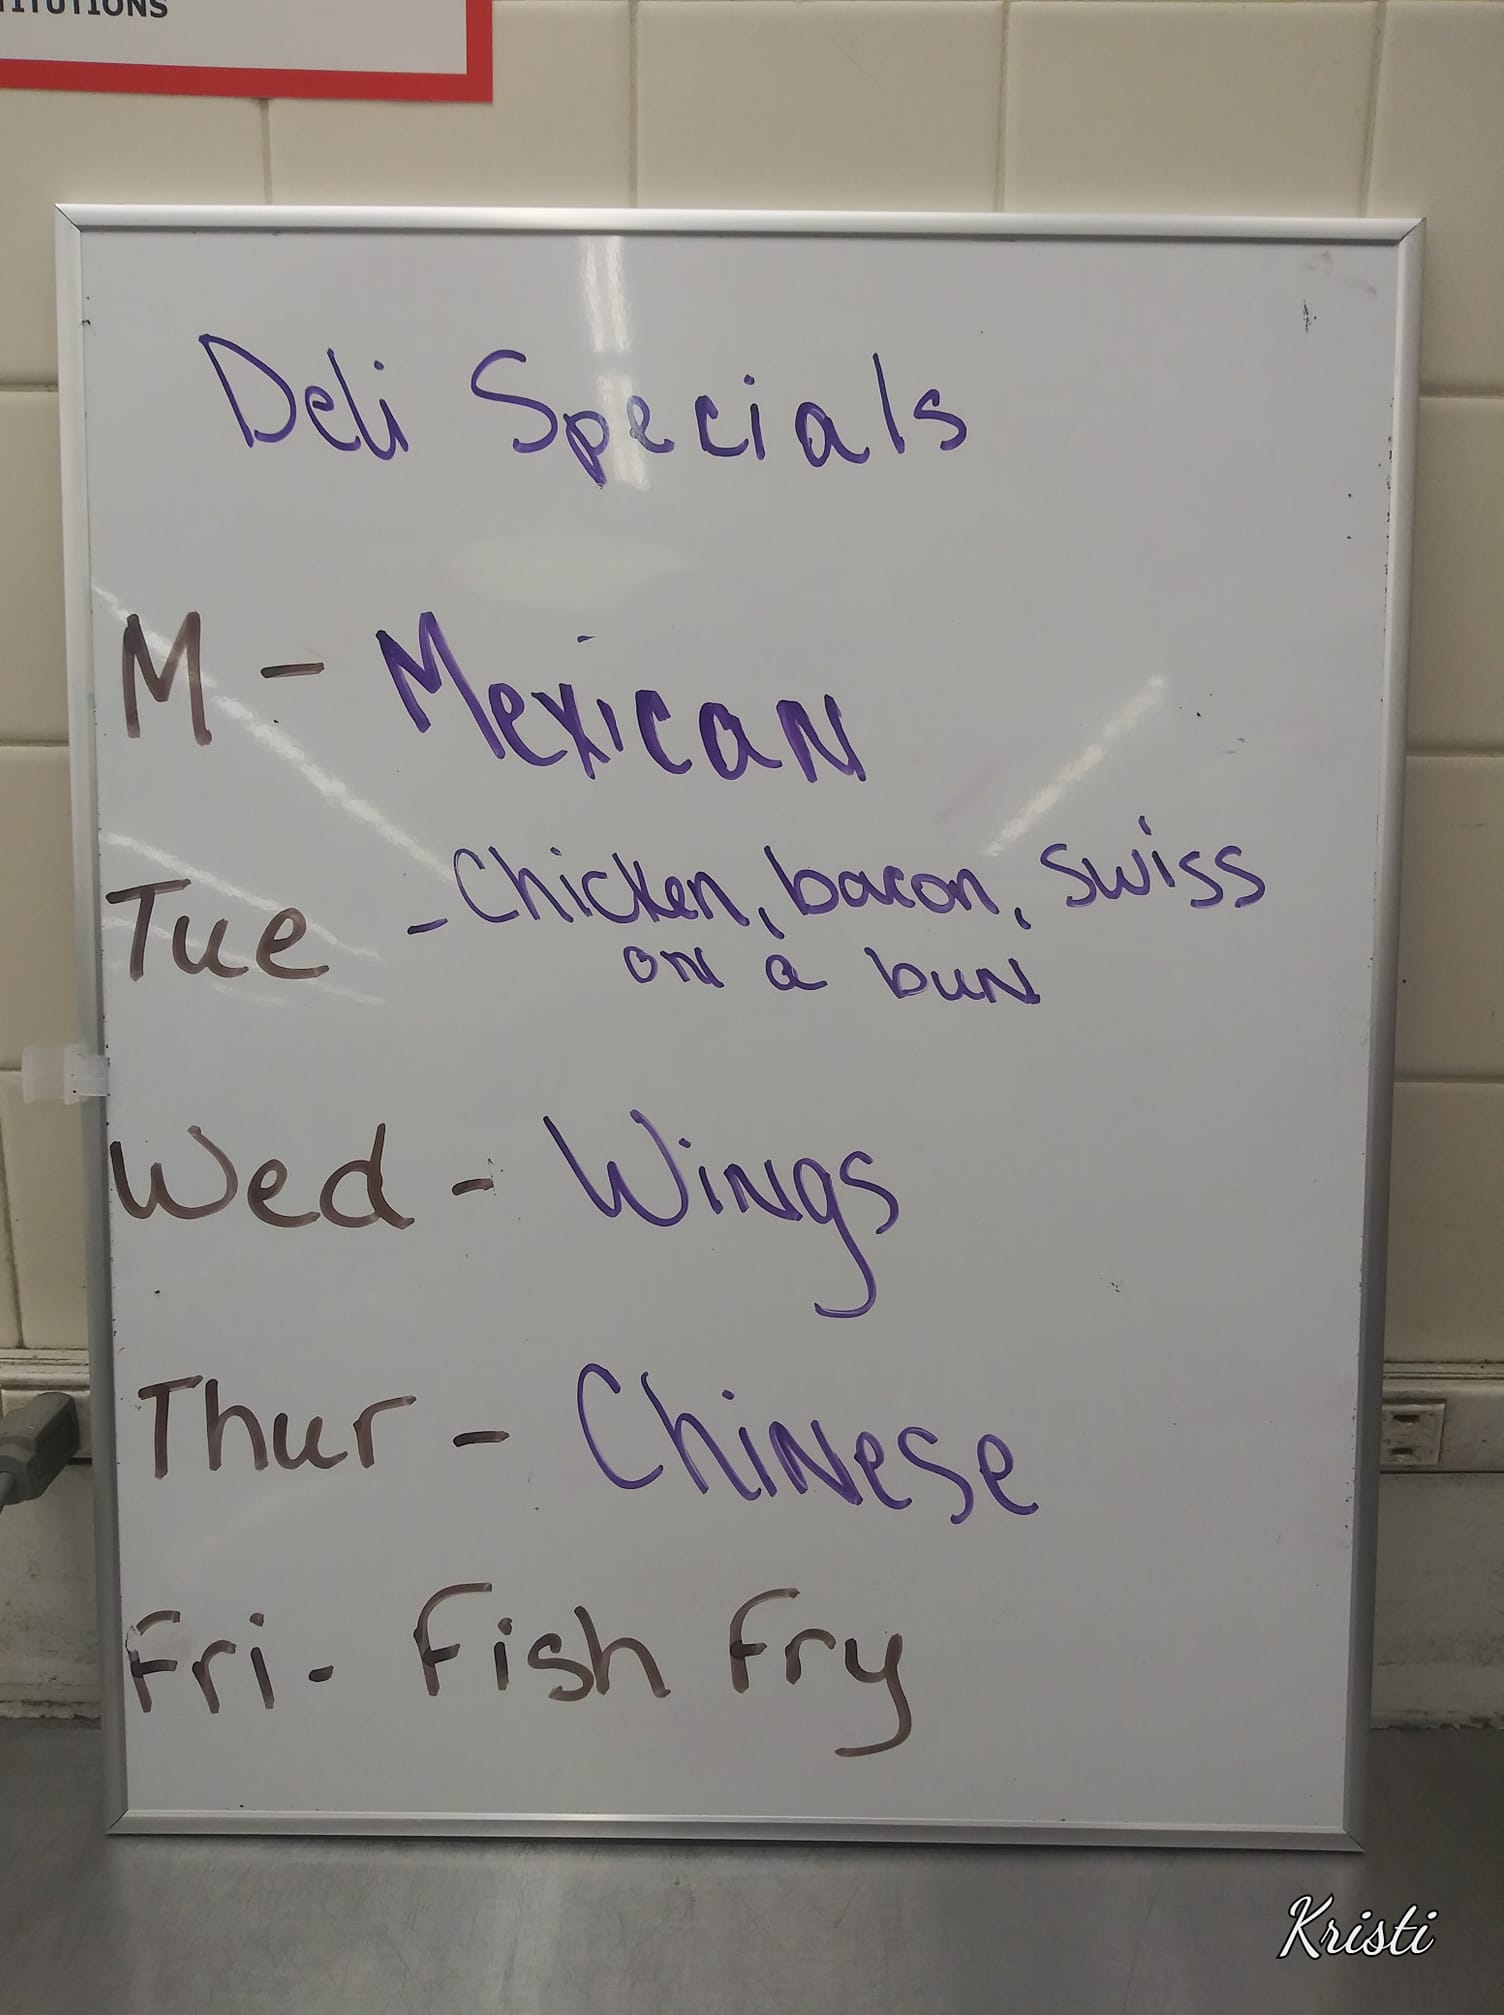 TITUTIONS
Deli Specials
M - Mexican
Tue - Chicken, bacon, Swiss
on a bun
Wed - Wings
Thur - Chinese
Fri - Fish Fry
Kristi